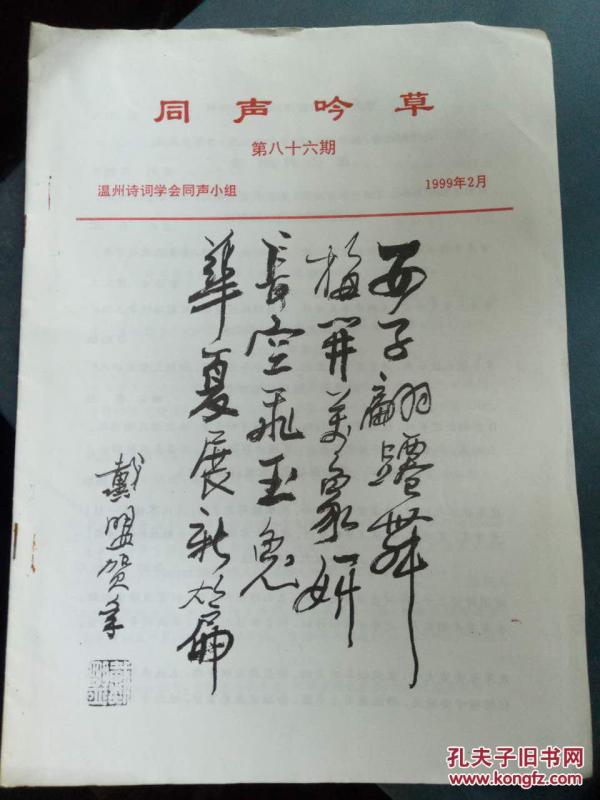 同声吟草
第八十六期
温州诗词学会同声小组
1999年2月
西子翩跹舞
梅开万象妍
長空飛玉兔
華夏展新篇
戴盟贺年
孔夫子旧书网
www.kongfz.com